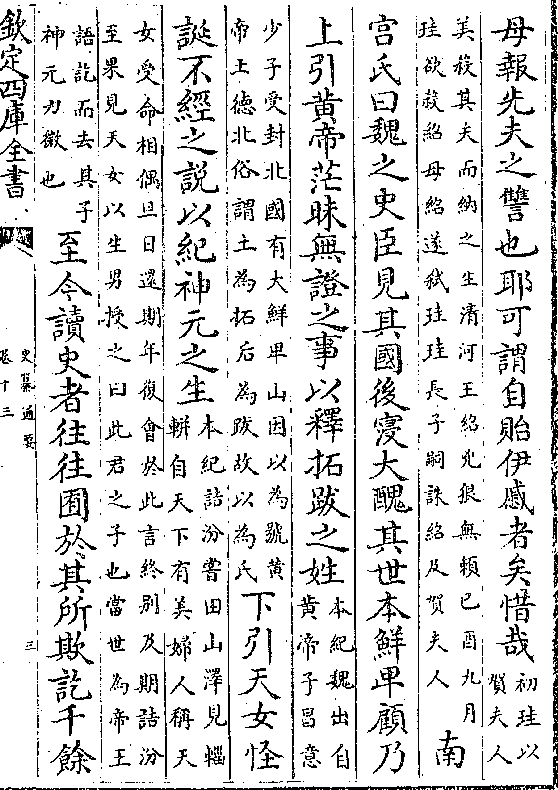 母報先夫之讐也耶可謂自貽伊慼者矣惜哉
初珪以
賀夫人
美殺其夫而納之生清河王紹兇狠無賴已酉九月
珪欲殺紹母紹遂弑珪珪長子嗣誅紹及賀夫人
南
宮氏曰魏之史臣見其國後寖大醜其世本鮮卑顧乃
上引黄帝茫昧無證之事以釋拓跋之姓
本紀魏出自
黄帝子昌意
少子受封北國有大鮮卑山因以為號黄
帝土德北俗謂土為拓后為跋故以為氏
下引天女怪
誕不經之説以紀神元之生
本紀詰汾嘗田山澤見輜
軿自天下有美婦人稱天
女受命相偶旦日還期年復會於此言終别及期詰汾
至果見天女以生男授之曰此君之子也當世為帝王
語訖而去其子
神元力微也
至今讀史者往往囿於其所欺訖千餘
欽定四庫全書
史纂通要
卷十三
三